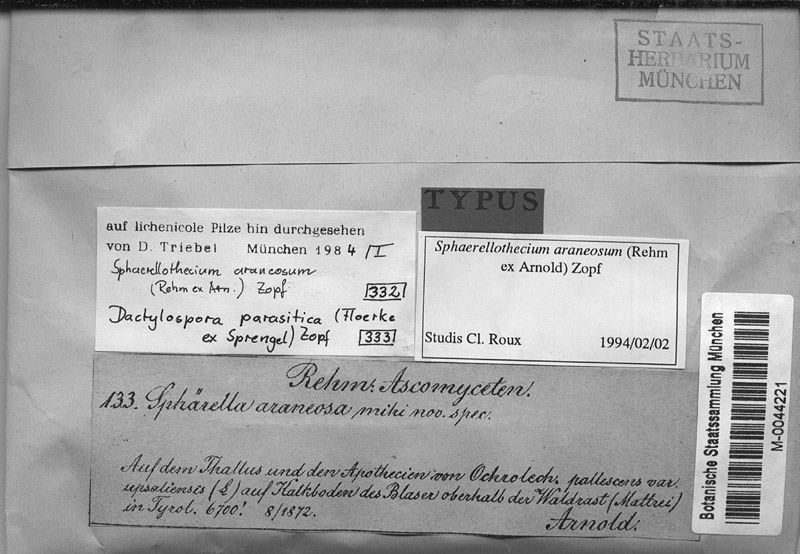 STAATS-
HERBARIUM
MÜNCHEN
TYPUS
auf lichenicole Pilze hin durchgesehen
von D. Triebel München 1984 / I
Sphaerellothecium araneosum
(Rehm ex Arn.) Zopf 332
Dactylospora parasitica (Floerke
ex Sprengel) Zopf 333
Sphaerellothecium araneosum (Rehm
ex Arnold) Zopf
Studis Cl. Roux 1994/02/02
Rehm: Ascomyceten.
133. Sphärella araneosa mihi nov. spec.
Auf dem Thallus und den Apothecien von Ochrolech. pallescens var.
upsaliensis (L) auf Kalkboden des Blaser oberhalb der Waldrast (Mattrei)
in Tyrol. 6700! 8/1872.
Arnold.
Botanische Staatssammlung München
M-0044221